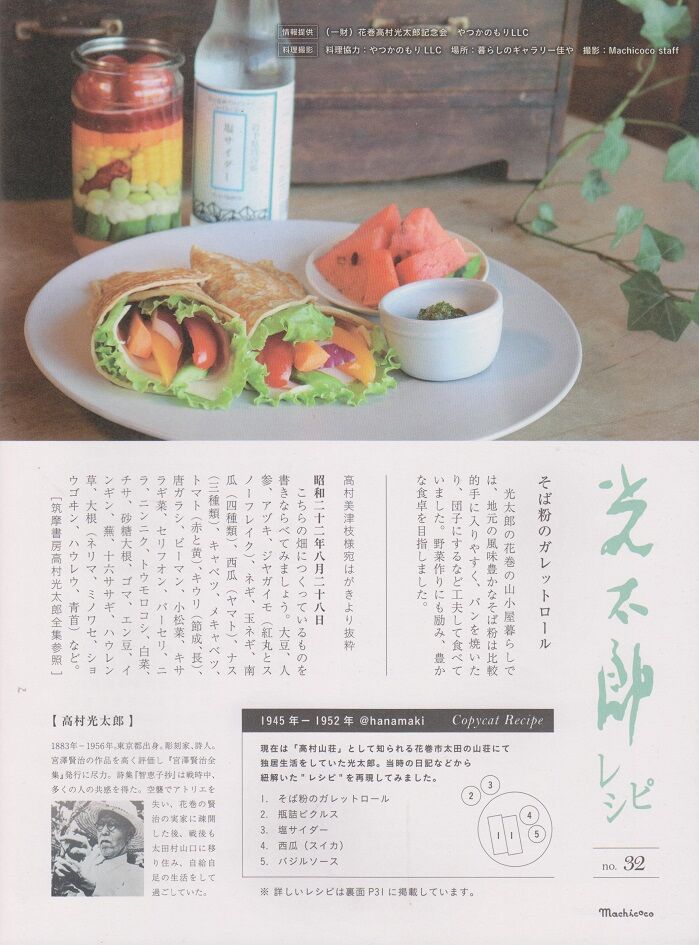 情報提供 (一財)花巻高村光太郎記念会 やつかのもりLLC
料理撮影 料理協力：やつかのもりLLC 場所：暮らしのギャラリー佳や 撮影：Machicoco staff
塩サイダー
光太郎
レシピ
no. 32
Machicoco
そば粉のガレットロール
光太郎の花巻の山小屋暮らしで
は、地元の風味豊かなそば粉は比較
的手に入りやすく、パンを焼いた
り、団子にするなど工夫して食べて
いました。野菜作りにも励み、豊か
な食卓を目指しました。
高村美津枝様宛はがきより抜粋
昭和二十二年八月二十八日
こちらの畑につくっているものを
書きならべてみましょう。大豆、人
参、アヅキ、ジヤガイモ（紅丸とス
ノーフレイク）、ネギ、玉ネギ、南
瓜（四種類）、西瓜（ヤマト）、ナス
（三種類）、キャベツ、メキャベツ、
トマト（赤と黄）、キウリ（節成、長）、
唐ガラシ、ピーマン、小松菜、キサ
ラギ菜、セリフオン、パーセリ、ニ
ラ、ニンニク、トウモロコシ、白菜、
チサ、砂糖大根、ゴマ、エン豆、イ
ンギン、蕪、十六ササギ、ハウレン
草、大根（ネリマ、ミノワセ、ショ
ウゴヰン、ハウレウ、青首）など。
［筑摩書房高村光太郎全集参照］
【高村光太郎】
1883年－1956年。東京都出身。彫刻家、詩人。
宮澤賢治の作品を高く評価し『宮澤賢治全
集』発行に尽力。詩集『智恵子抄』は戦時中、
多くの人の共感を得た。空襲でアトリエを
失い、花巻の賢
治の実家に疎開
した後、戦後も
太田村山口に移
り住み、自給自
足の生活をして
過ごしていた。
1945年－1952年 @hanamaki Copycat Recipe
現在は「高村山荘」として知られる花巻市太田の山荘にて
独居生活をしていた光太郎。当時の日記などから
紐解いた"レシピ"を再現してみました。
1. そば粉のガレットロール
2. 瓶詰ピクルス
3. 塩サイダー
4. 西瓜（スイカ）
5. バジルソース
2
3
1
1
4
5
※ 詳しいレシピは裏面P31に掲載しています。